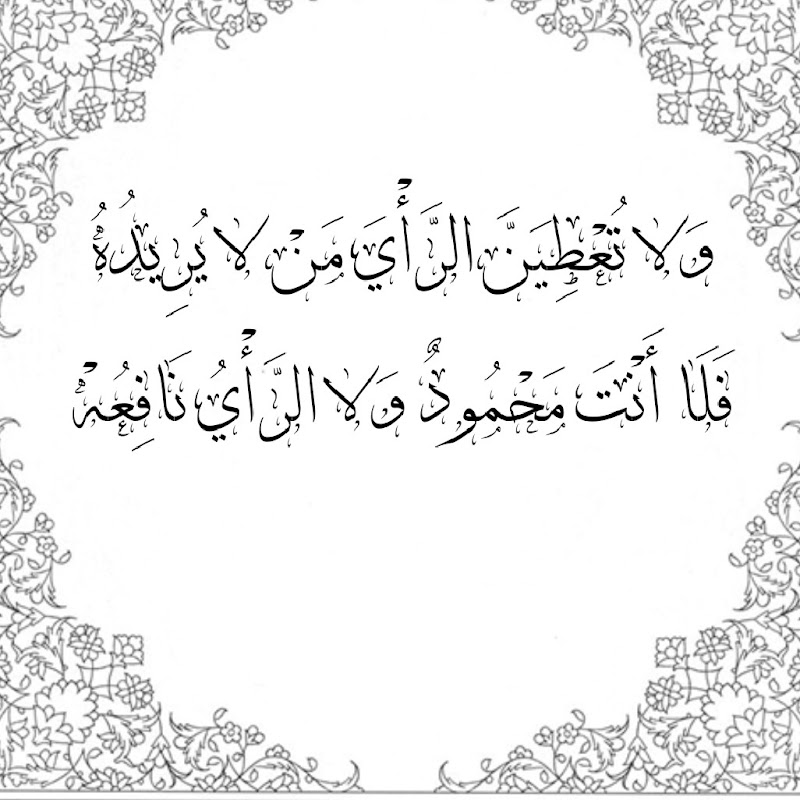 وَلا تُعْطِيَنَّ الرَّأْيَ مَنْ لا يُرِيدُهُ
فَلَا أَنْتَ مَحْمُودٌ وَلا الرَّأْيُ نَافِعُهْ